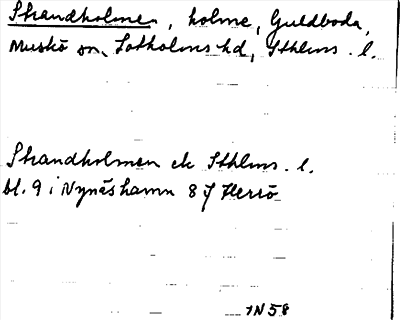 Strandholmen, holme, Guldboda,
Muskö sn, Sotholms hd, Sthlms. l.
Strandholmen ek Sthlms. l.
bl. 9 i Nynäshamn 8 J Herrö
IN 58